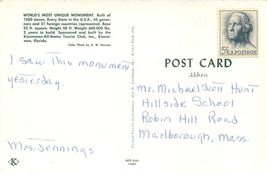 WORLD'S MOST UNIQUE MONUMENT. Built of
1500 stones. Every State in the U.S.A., 43 gover-
nors and 21 foreign countries represented. Base
72 ft. square. Height 50 ft. Weight 600,000 lbs.
2 years to build. Sponsored and built by the
Kissimmee All-States Tourist Club, Inc., Kissim-
mee, Florida.
Color Photo by
I saw this monument
yesterday.
Mrs. Jennings
K
POST CARD
Address
5¢ U.S. POSTAGE
Mr. Michael Scott Hunt
Hillside School
Robin Hill Road
Marlborough, Mass.